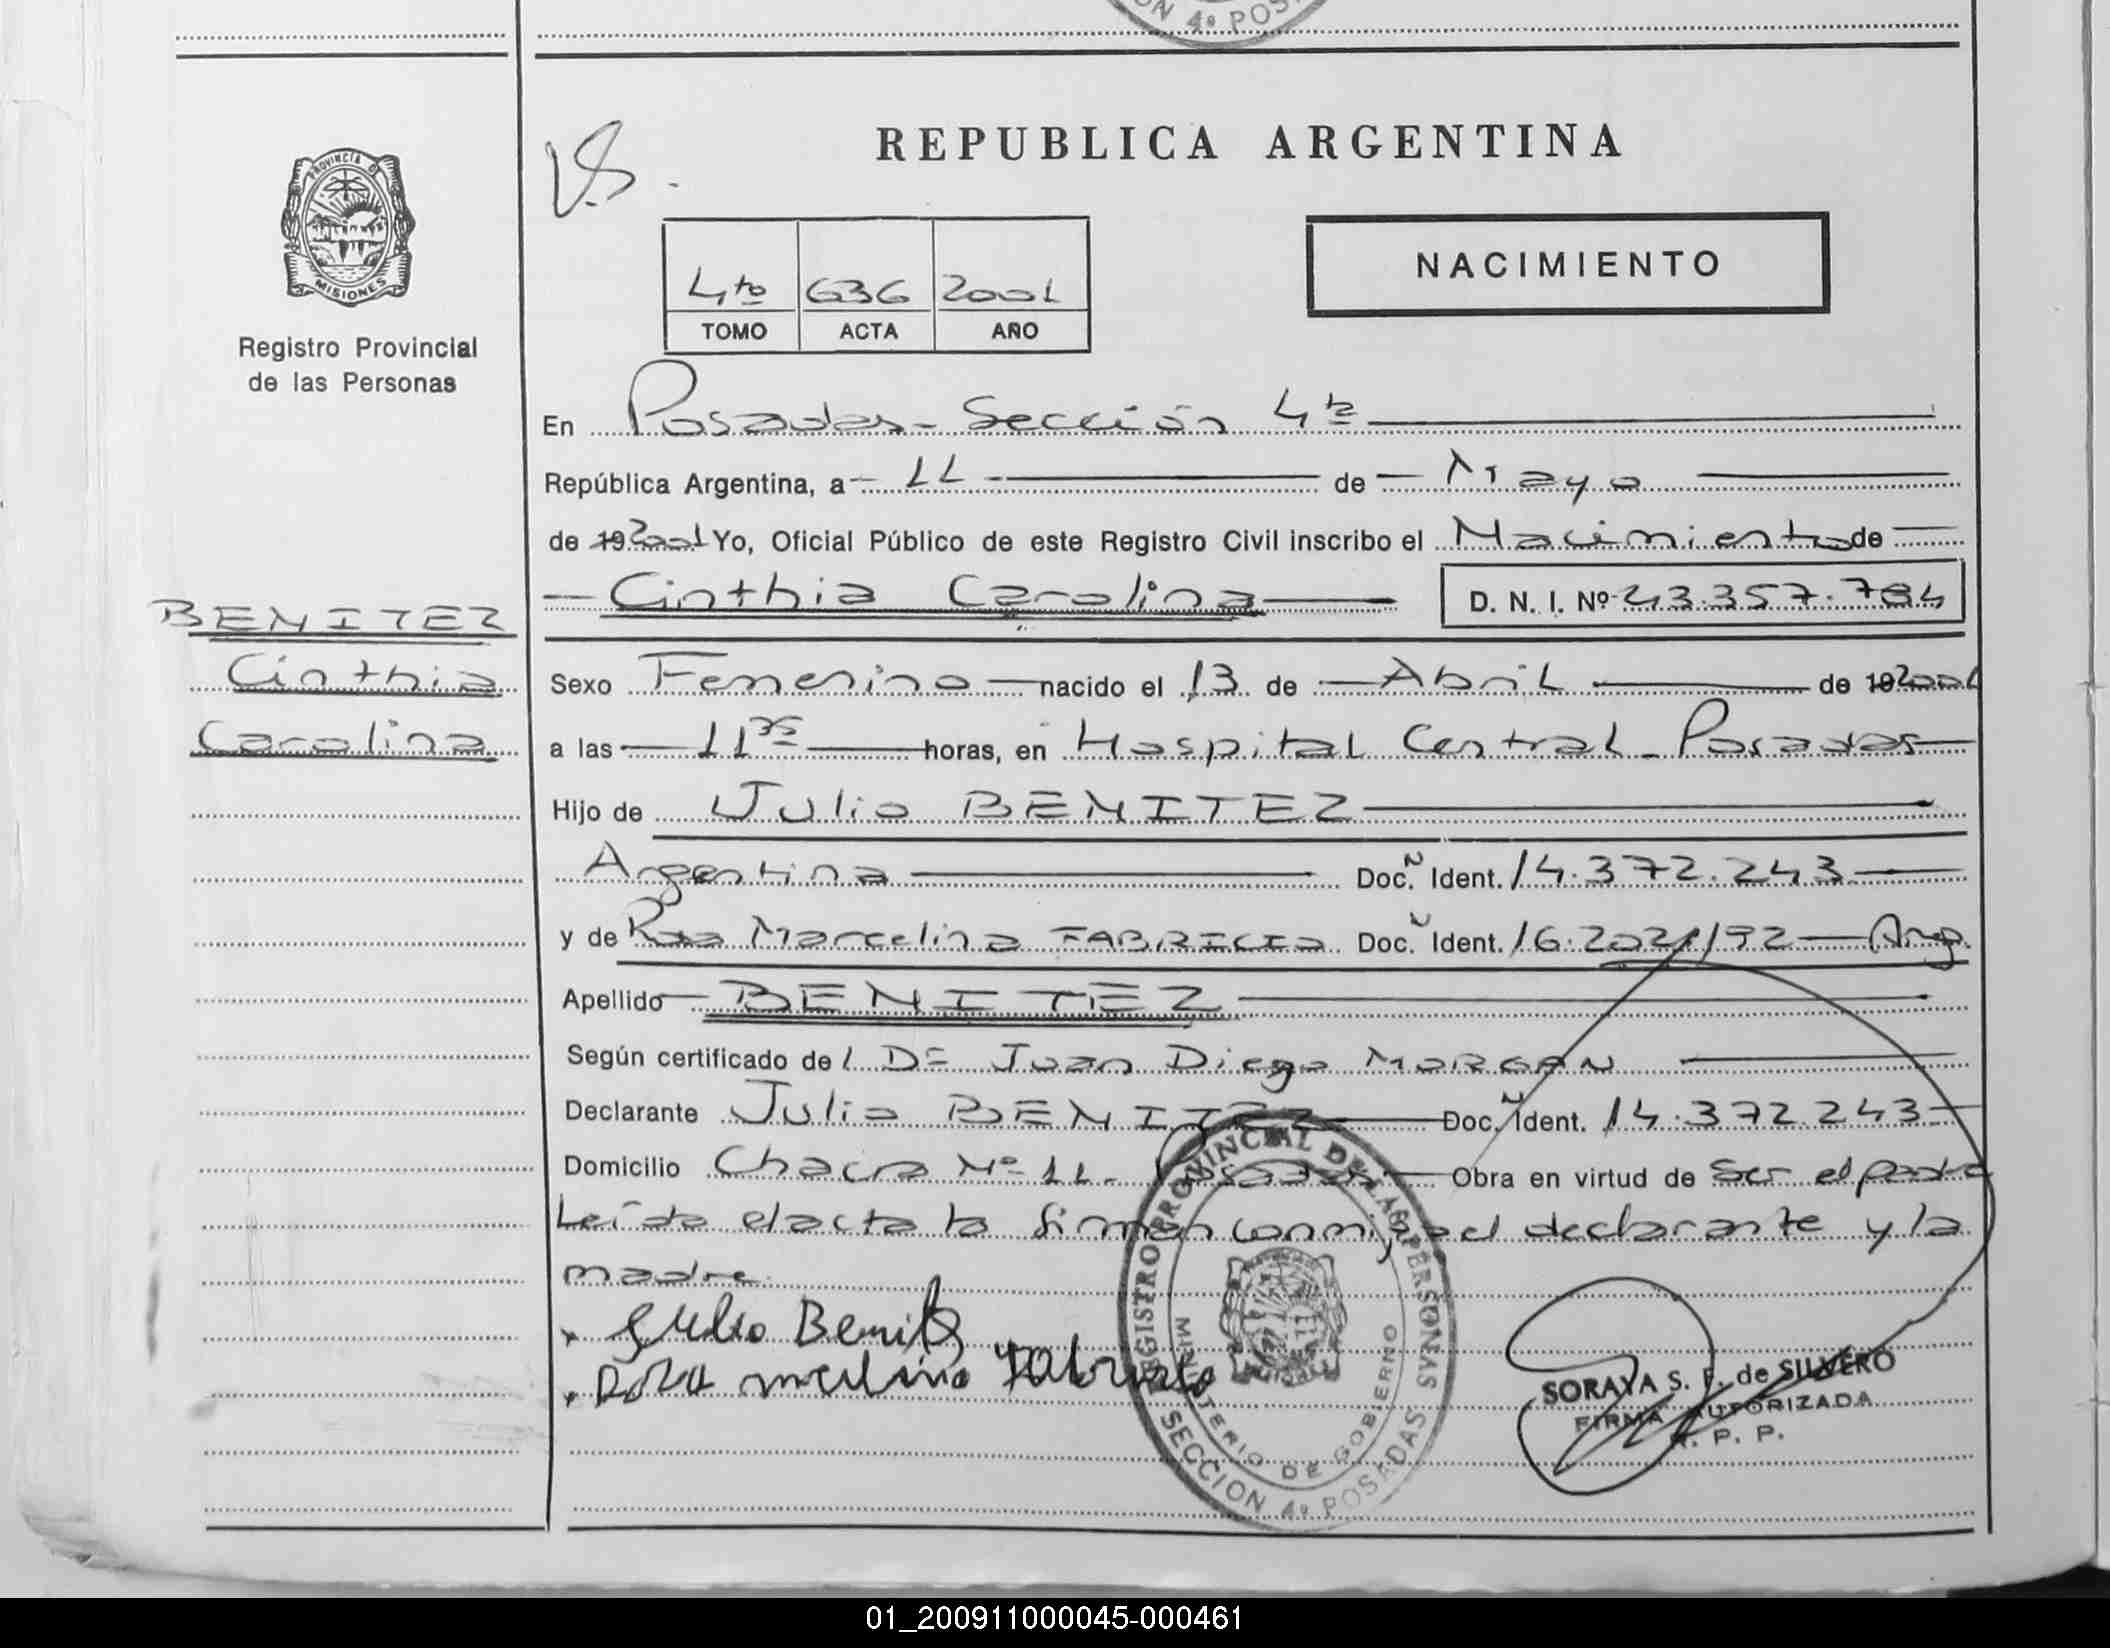 ON 4º POS
REPUBLICA ARGENTINA
PROVINCIA DE
MISIONES
Registro Provincial
de las Personas
4to 636 2001
TOMO ACTA AÑO
NACIMIENTO
En Posadas - Sección 4ta
República Argentina, a 11 de Mayo
de 19 2001 Yo, Oficial Público de este Registro Civil inscribo el Nacimiento de
Cinthia Carolina D. N. I. Nº 43.357.784
BENITEZ
Cinthia
Carolina
Sexo Femenino nacido el 13 de Abril de 19 2001
a las 11 35 horas, en Hospital Central - Posadas
Hijo de Julio BENITEZ
Argentina Doc. N Ident. 14.372.243
y de Rosa Marcelina FABRICIO Doc. N Ident. 16.202.192 - Arg.
Apellido BENITEZ
Según certificado de l Dr Juan Diego MORGAN
Declarante Julio BENITEZ Doc. N Ident. 14.372.243
Domicilio Chacra Nº 11 - Posadas Obra en virtud de Ser el padre
Leída el acta la firman conmigo el declarante y la
madre.
Julio Benitez
Rosa marcelina Fabricio
REGISTRO PROVINCIAL DE LAS PERSONAS
MINISTERIO DE GOBIERNO
SECCION 4º POSADAS
SORAYA S. F. de SILVERO
FIRMA AUTORIZADA
R. P. P.
01_200911000045-000461